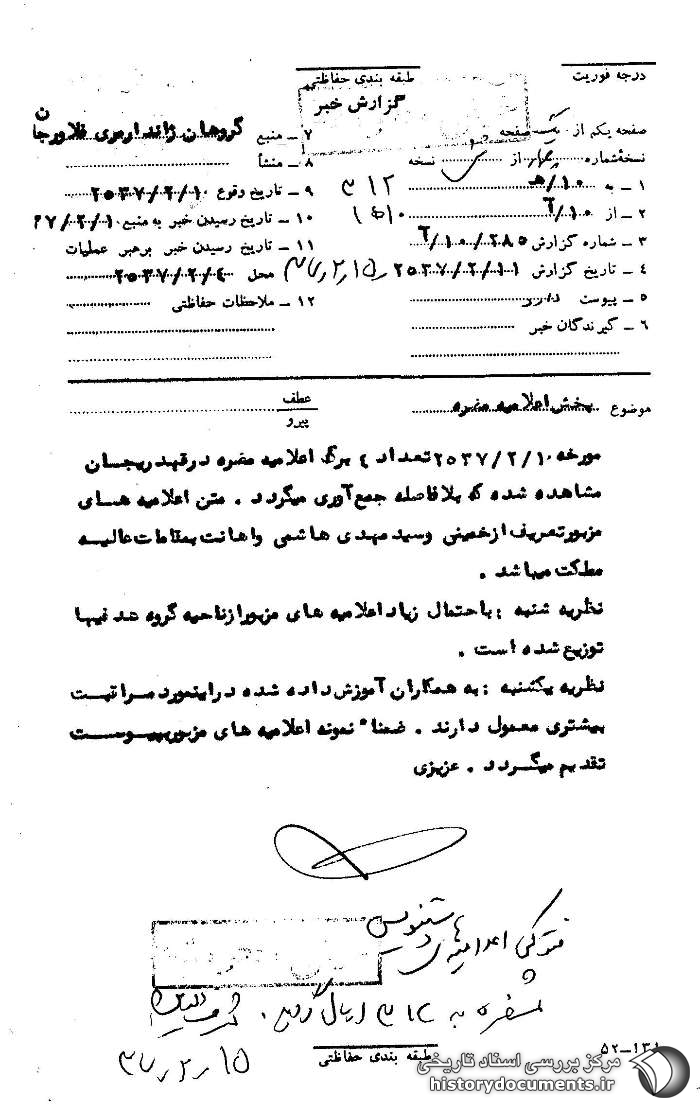 درجه فوریت
طبقه بندی حفاظتی
گزارش خبر
صفحه یکم از یک صفحه
نسخهٔ شماره چهار از نسخه
۱ ـ به ۱۰/ه ۳۱۲
۲ ـ از ۱۰/ آ
۳ ـ شماره گزارش ۲۸۵ /۱۰/ آ
۴ ـ تاریخ گزارش ۲۵۳۷/۲/۱۱
۵ ـ پیوست دارد
۶ ـ گیرندگان خبر
۷ ـ منبع گروهان ژاندارمری فلاورجان
۸ ـ منشأ
۹ ـ تاریخ وقوع ۲۵۳۷/۲/۱۰
۱۰ ـ تاریخ رسیدن خبر به منبع ۳۷/۲/۱۰
۱۱ ـ تاریخ رسیدن خبر برهبر عملیات
محل ۲۵۳۷/۲/۴ ۳۷٫۲٫۱۵
۱۲ ـ ملاحظات حفاظتی
موضوع پخش اعلامیه مضره
عطف
پیرو
مورخه ۲۵۳۷/۲/۱۰ تعداد ۴ برگ اعلامیه مضره در قهدریجسان
مشاهده شده که بلافاصله جمع آوری میگردد . متن اعلامیه هسای
مزبور تعریف از خمینی وسید مهدی هاشمی واهانت بمقامات عالیـه
مملکت میباشد .
نظریه شنبه : با احتمال زیاد اعلامیه های مزبور از ناحیه گروه هدفیها
توزیع شده است .
نظریه یکشنبه : به همکاران آموزش داده شده در اینمورد مراقبت
بیشتری معمول دارند . ضمناً نمونه اعلامیه های مزبور بپیوست
تقدیم میگردد . عزیزی
فتوکپی اعلامیه‌های دستنویس
مضره به ۳۱۲ ارسال گردید .
۳۷٫۲٫۱۵
طبقه بندی حفاظتی
۵۲-۱۳۱
مرکز بررسی اسناد تاریخی
historydocuments.ir